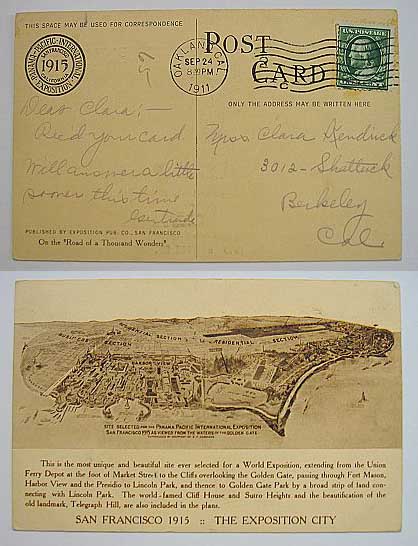 THIS SPACE MAY BE USED FOR CORRESPONDENCE
PANAMA-PACIFIC-INTERNATIONAL EXPOSITION
SAN FRANCISCO
1915
CALIFORNIA
POST CARD
OAKLAND, CAL.
SEP 24
8 PM
1911
ONLY THE ADDRESS MAY BE WRITTEN HERE
Dear Clara:-
Rec'd your card
Will answer a little
sooner this time
Gertrude
Miss Clara Hendrick
3012- Shattuck
Berkeley
Cal
PUBLISHED BY EXPOSITION PUB. CO., SAN FRANCISCO
On the "Road of a Thousand Wonders".
BUSINESS SECTION
RESIDENTIAL SECTION
RESIDENTIAL SECTION
SITE SELECTED FOR THE PANAMA PACIFIC INTERNATIONAL EXPOSITION
SAN FRANCISCO 1915 AS VIEWED FROM THE WATERS OF THE GOLDEN GATE
This is the most unique and beautiful site ever selected for a World Exposition, extending from the Union
Ferry Depot at the foot of Market Street to the Cliffs overlooking the Golden Gate, passing through Fort Mason,
Harbor View and the Presidio to Lincoln Park, and thence to Golden Gate Park by a broad strip of land con-
necting with Lincoln Park. The world-famed Cliff House and Sutro Heights and the beautification of the
old landmark, Telegraph Hill, are also included in the plans.
SAN FRANCISCO 1915 :: THE EXPOSITION CITY